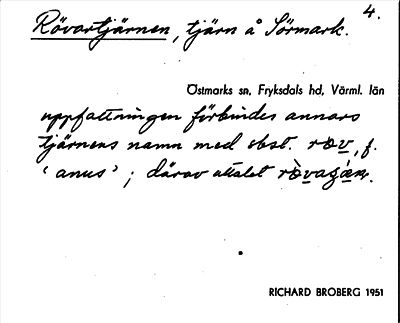 4.
Rövartjärnen, tjärn å Sörmark.
Östmarks sn, Fryksdals hd, Värml. län
uppfattningen förbindes annars
tjärnens namn med sbst. röv, f.
'anus'; därav uttalet
RICHARD BROBERG 1951